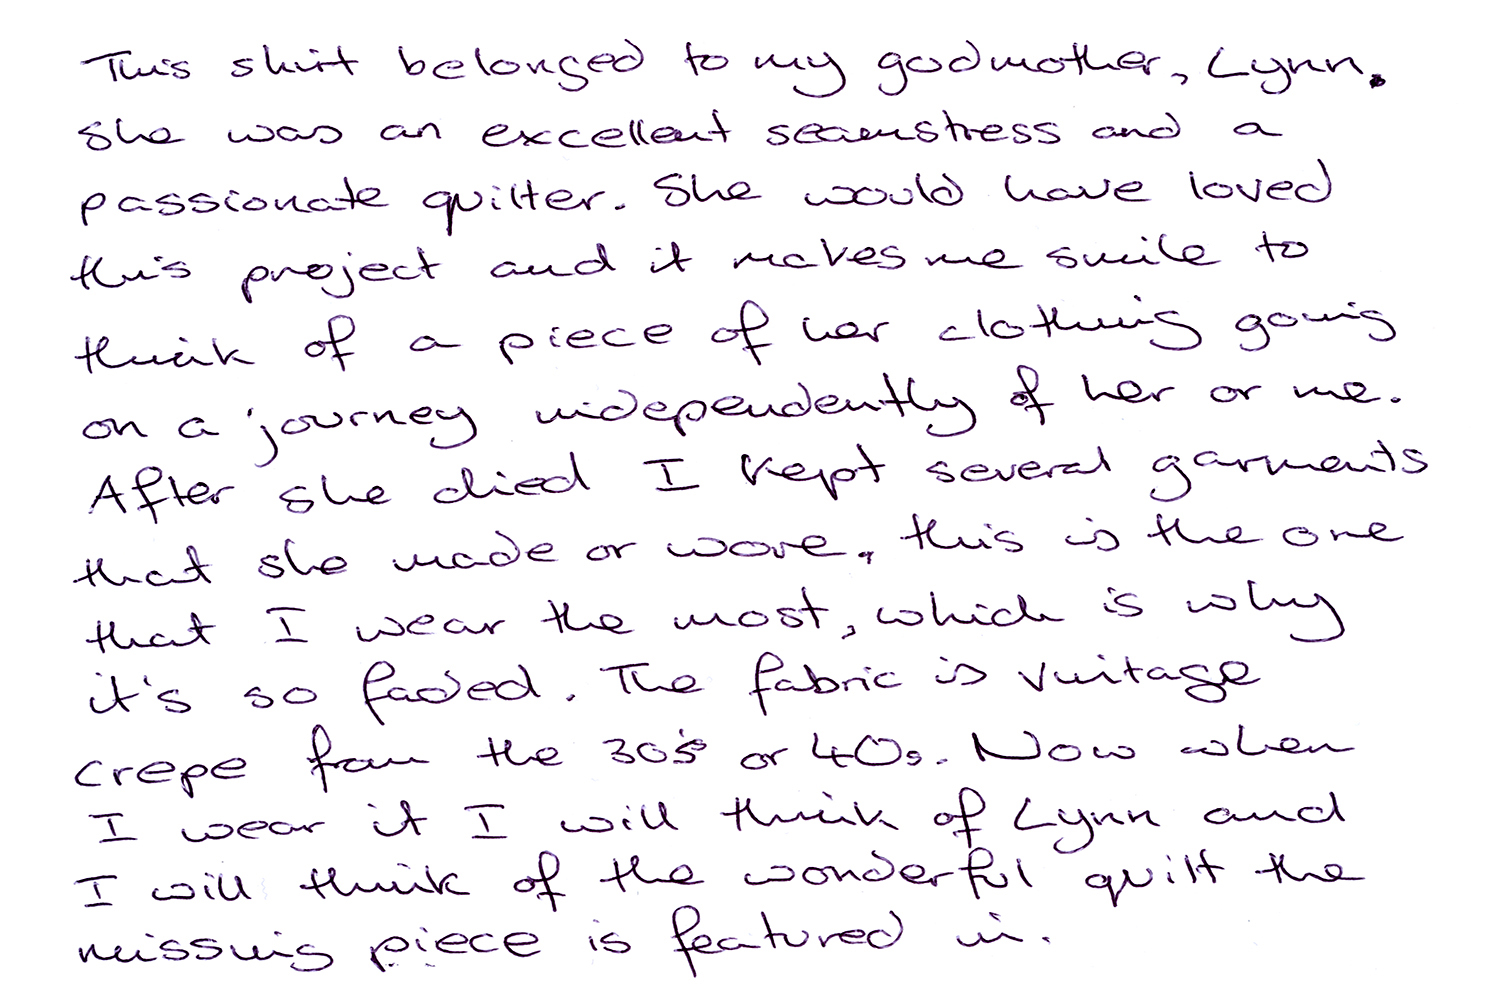 This shirt belonged to my godmother, Lynn.
She was an excellent seamstress and a
passionate quilter. She would have loved
this project and it makes me smile to
think of a piece of her clothing going
on a journey independently of her or me.
After she died I kept several garments
that she made or wore, this is the one
that I wear the most, which is why
it's so faded. The fabric is vintage
crepe from the 30's or 40s. Now when
I wear it I will think of Lynn and
I will think of the wonderful quilt the
missing piece is featured in.